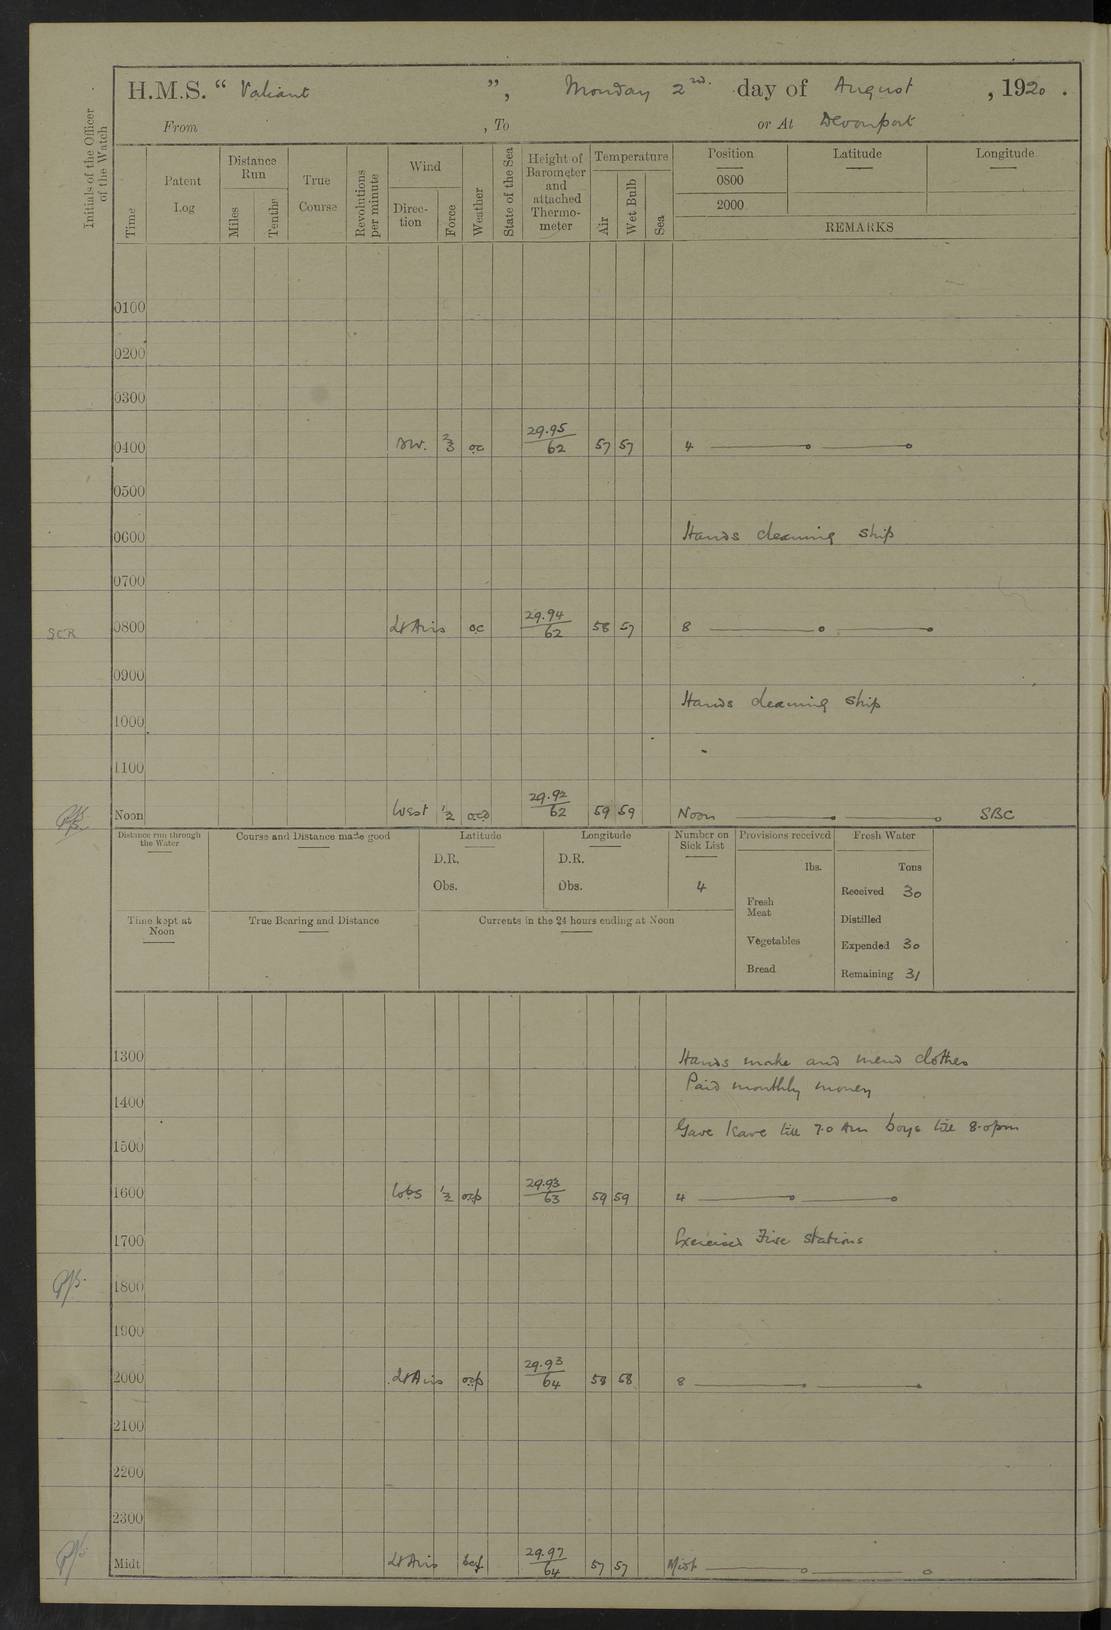 H.M.S. “ Valiant ”, Monday 2nd. day of August , 1920 .
From , To or At Devonport
Initials of the Officer of the Watch
Time
Patent Log
Distance Run
Miles
Tenths
True Course
Revolutions per minute
Wind
Direction
Force
Weather
State of the Sea
Height of Barometer and attached Thermometer
Temperature
Air
Wet Bulb
Sea
Position
0800
2000
Latitude
Longitude
REMARKS
0100
0200
0300
0400 SW. 2/3 oc 29.95/62 57 57 4
0500
0600 Hands cleaning ship
0700
SCR 0800 Lt Airs oc 29.94/62 58 57 8
0900
1000 Hands cleaning ship
1100
Noon West 1/2 29.92/62 59 59 Noon SBC
Distance run through the Water
Course and Distance made good
Latitude
D.R.
Obs.
Longitude
D.R.
Obs.
Number on Sick List
4
Provisions received
lbs.
Fresh Meat
Vegetables
Bread
Fresh Water
Tons
Received 30
Distilled
Expended 30
Remaining 31
Time kept at Noon
True Bearing and Distance
Currents in the 24 hours ending at Noon
1300 Hands make and mend clothes
Paid monthly money
1400
Gave leave till 7.0 Am boys till 8.0pm
1500
1600 WbS 1/2 ocp 29.93/63 59 59 4
1700 Exercised Fire stations
1800
1900
2000 Lt Airs ocp 29.93/64 58 58 8
2100
2200
2300
Midt Lt Airs 29.97/64 57 57 Midt